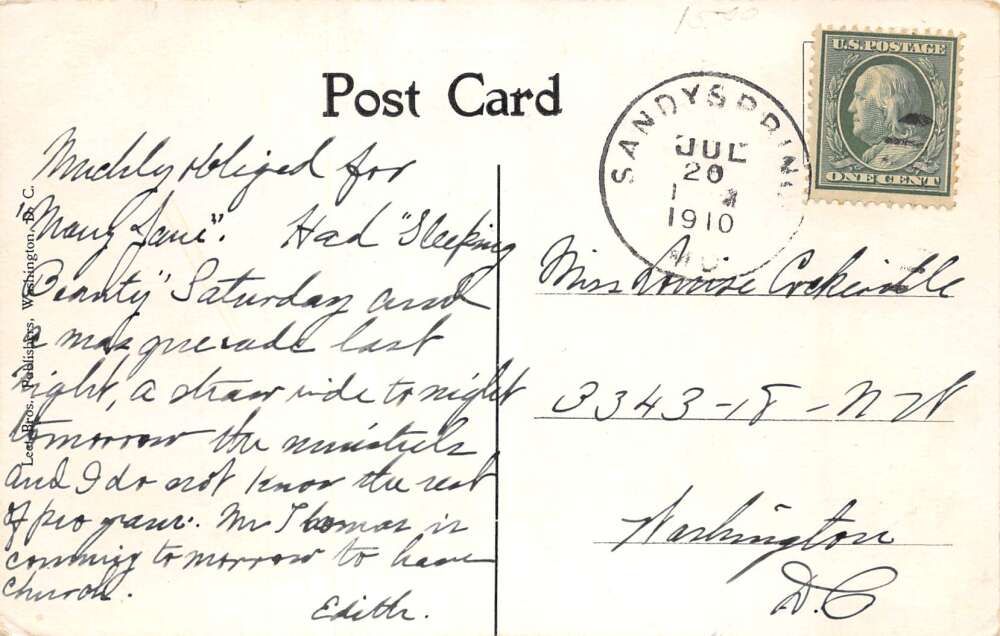 15-00
Post Card
U.S. POSTAGE
ONE CENT
SANDY SPRING
JUL
20
1910
MD.
Leet Bros., Publishers, Washington, D. C.
Muchly obliged for
"Mary Jane". Had "Sleeping
Beauty" Saturday and
a masquerade last
night, a straw ride tonight
tomorrow the minstrels
and I do not know the rest
of program. Mr Thomas is
comming tomorrow to have
church.
Edith.
Miss Louise
3343-18-NW
Washington
D.C